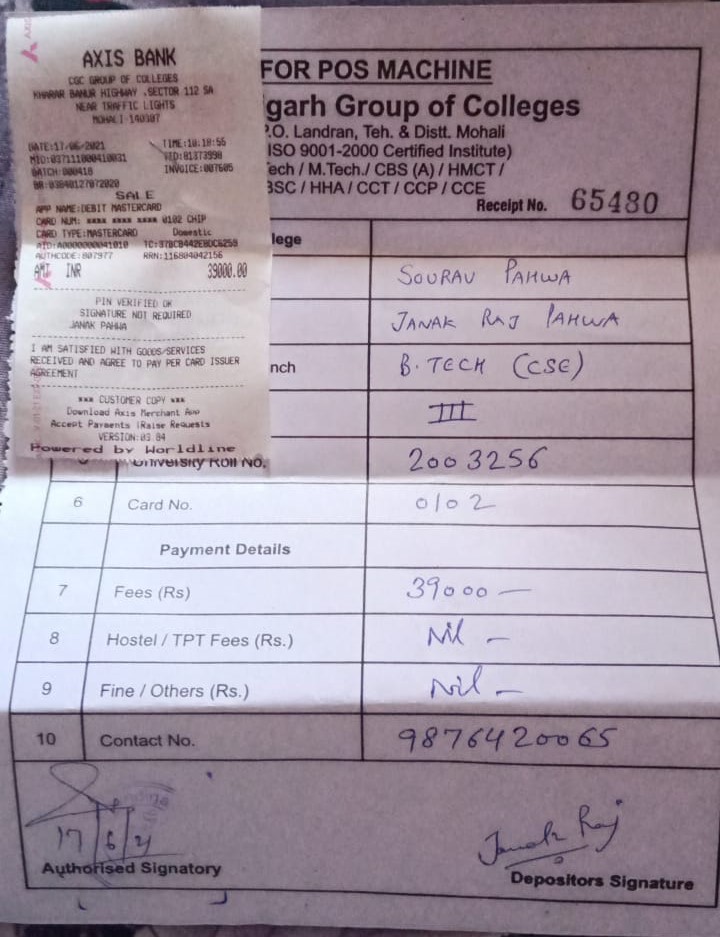 AXIS BANK
CGC GROUP OF COLLEGES
KHARAR BANUR HIGHWAY ,SECTOR 112 SA
NEAR TRAFFIC LIGHTS
MOHALI 140307
DATE:17/06/2021 TIME:10:18:55
MID:037111000410031 TID:81373998
BATCH:000418 INVOICE:007605
BR:03840127072020
SALE
APP NAME:DEBIT MASTERCARD
CARD NUM: xxxx xxxx xxxx 0102 CHIP
CARD TYPE:MASTERCARD Domestic
AID:A0000000041010 TC:37BCB442EBDC6259
AUTHCODE:807977 RRN:116804042156
AMT INR 39000.00
PIN VERIFIED OK
SIGNATURE NOT REQUIRED
JANAK PAHWA
I AM SATISFIED WITH GOODS/SERVICES
RECEIVED AND AGREE TO PAY PER CARD ISSUER
AGREEMENT
*** CUSTOMER COPY ***
Download Axis Merchant App
Accept Payments |Raise Requests
VERSION:03.04
Powered by Worldline
FOR POS MACHINE
garh Group of Colleges
P.O. Landran, Teh. & Distt. Mohali
ISO 9001-2000 Certified Institute)
ech / M.Tech./ CBS (A) / HMCT /
BSC / HHA / CCT / CCP / CCE
Receipt No. 65480
lege
SOURAV PAHWA
JANAK RAJ PAHWA
nch B.TECH (CSE)
III
University Roll No. 2003256
6 Card No. 0102
Payment Details
7 Fees (Rs) 39000 —
8 Hostel / TPT Fees (Rs.) Nil –
9 Fine / Others (Rs.) Nil –
10 Contact No. 9876420065
17/6/21
Authorised Signatory
Janak Raj
Depositors Signature